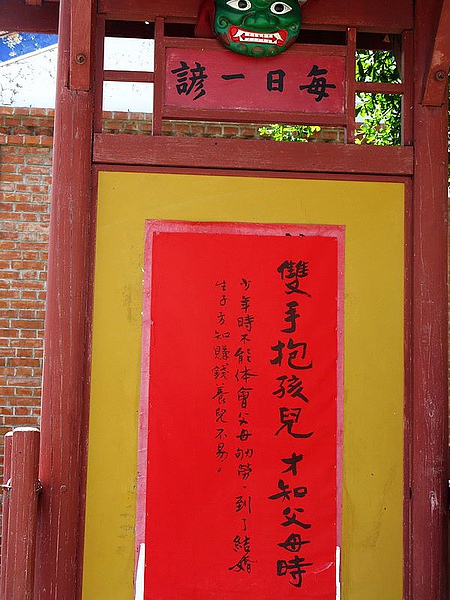 每日一諺
雙手抱孩兒 才知父母時
少年時不能体會父母劬勞，到了結婚
生子方知賺錢養兒不易。